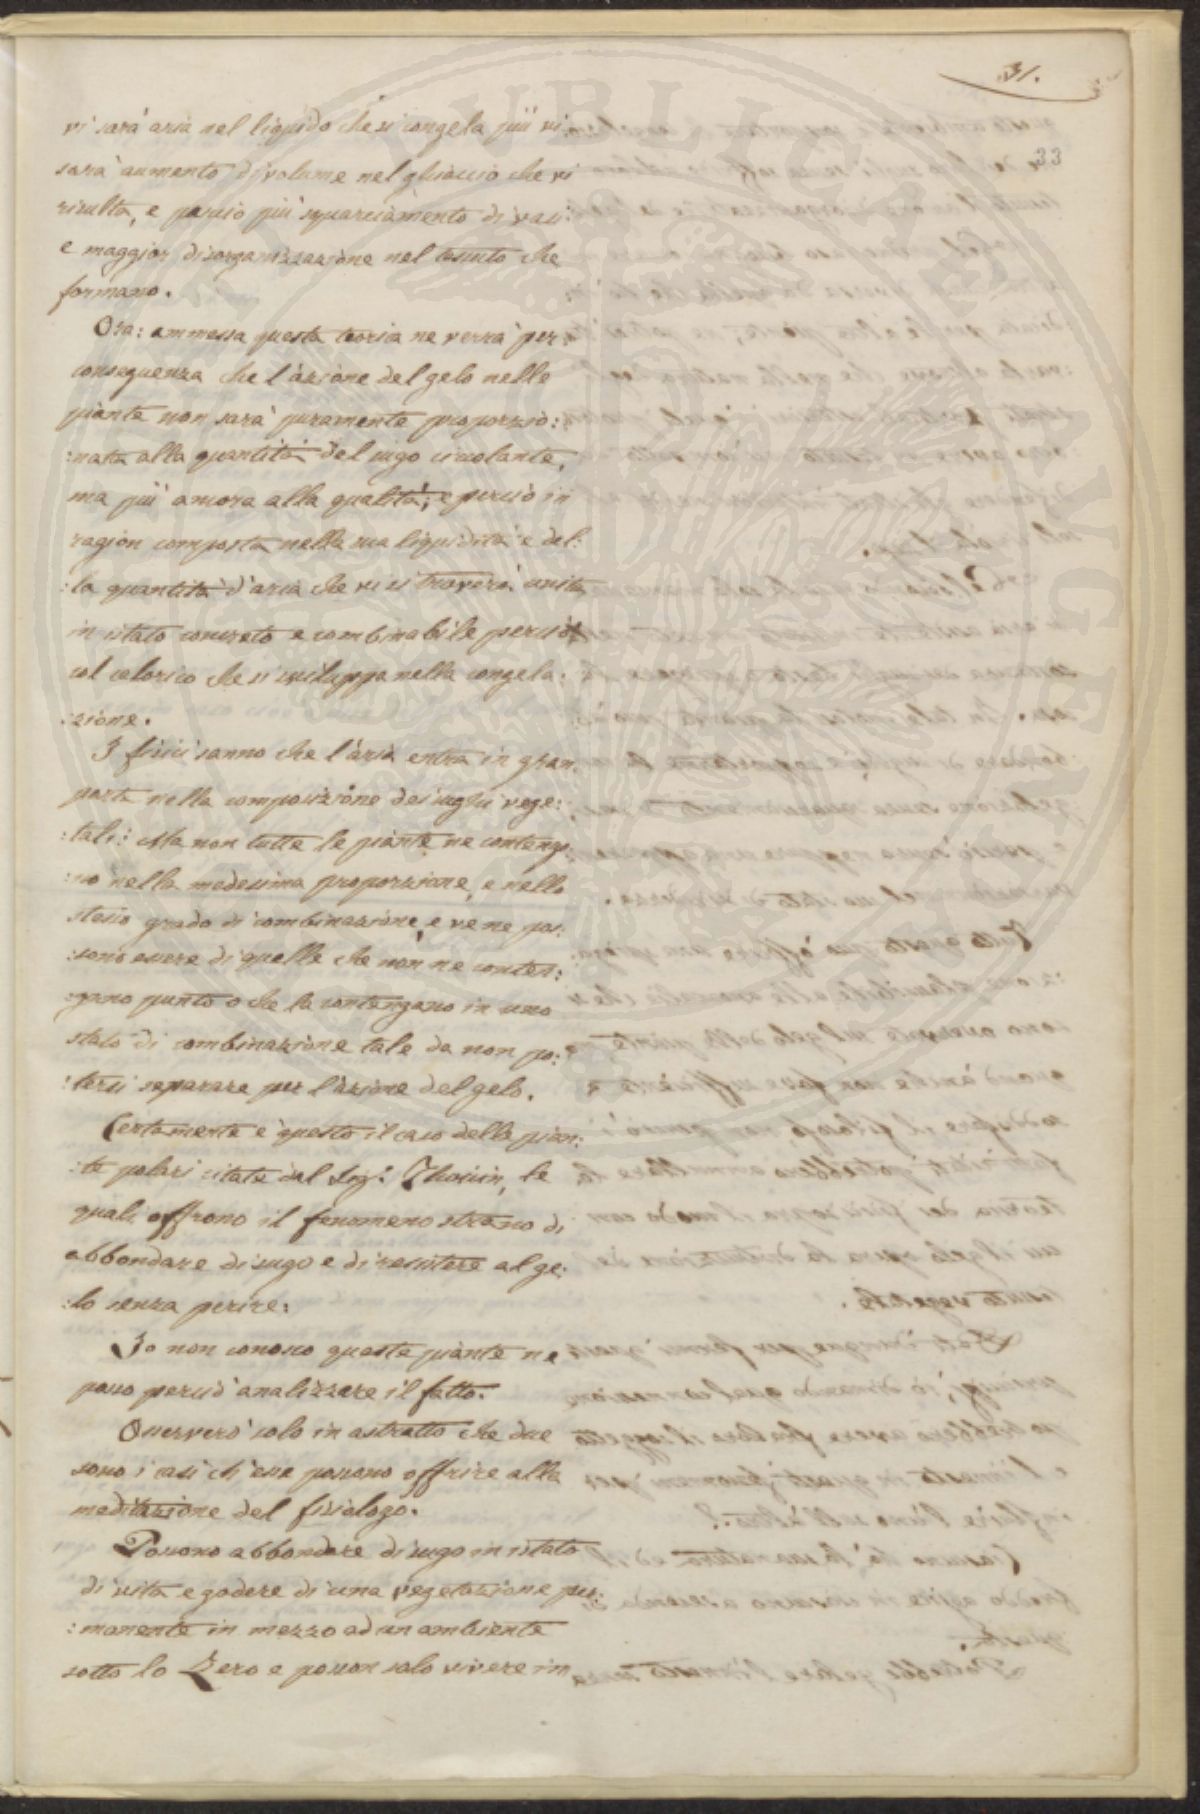 31.
33
vi sarà aria nel liquido che si congela più vi
sarà aumento di volume nel ghiaccio che vi
risulta, e perciò più squarciamento di vasi
e maggior disorganizzazione nel tessuto che
formano.
Ora: ammessa questa teoria ne verrà per
conseguenza che l'azione del gelo nelle
piante non sarà puramente proporzio:
:nata alla quantità del sugo circolante,
ma più ancora alla qualità; e perciò in
ragion composta nella sua liquidità e del:
:la quantità d'aria che vi si troverà unita
in istato concreto e combinabile perciò
col calorico che si sviluppa nella congela:
:zione.
I fisici sanno che l'aria entra in gran
parte nella composizione dei sughi vege:
:tali: Ma non tutte le piante ne conteng:
:no nella medesima proporzione, e nello
stesso grado di combinazione, e ve ne pos:
:sono essere di quelle che non ne conten:
:gano punto o che la contengano in uno
stato di combinazione tale da non po:
:tersi separare per l'azione del gelo.
Certamente è questo il caso delle pian:
:te polari citate dal Sigr. Thouin, le
quali offrono il fenomeno strano di
abbondare di sugo e di resistere al ge:
:lo senza perire.
Io non conosco queste piante ne
posso perciò analizzare il fatto.
Osserverò solo in astratto che due
sono i casi ch'esse possono offrire alla
meditazione del fisiologo.
Possono abbondare di sugo in istato
di vita e godere di una vegetazione per:
:manente in mezzo ad un ambiente
sotto lo Zero e posson solo vivere in
PUBLICAE